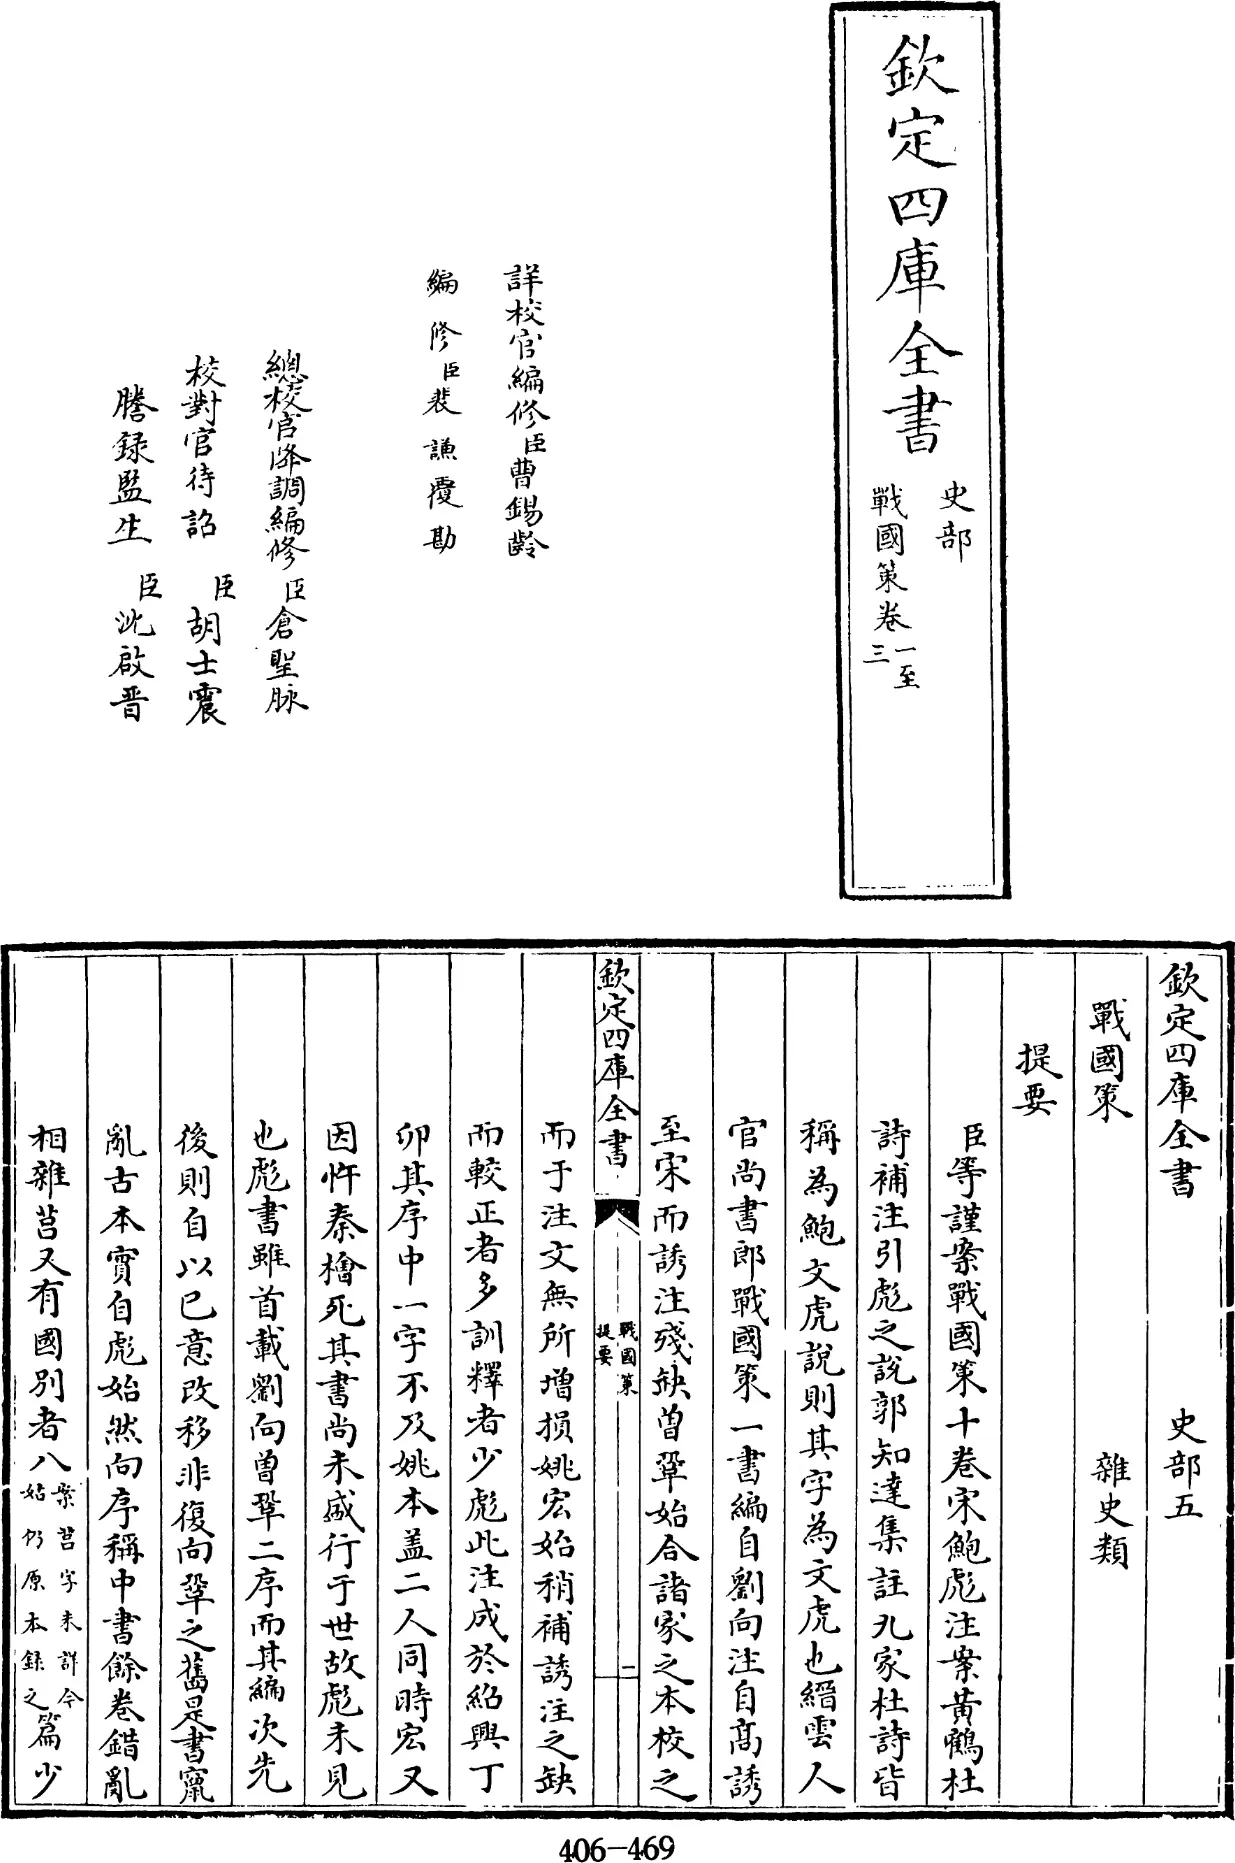 欽定四庫全書
史部
戰國策卷一至三
詳校官編修臣曹錫齡
編修臣裴謙覆勘
總校官降調編修臣倉聖脉
校對官待詔臣胡士震
謄録監生臣沈啟晋
欽定四庫全書 史部五
戰國策 雜史類
提要
臣等謹案戰國策十卷宋鮑彪注案黄鶴杜
詩補注引彪之說郭知達集註九家杜詩皆
稱為鮑文虎說則其字為文虎也縉雲人
官尚書郎戰國策一書編自劉向注自髙誘
至宋而誘注殘缺曾鞏始合諸家之本校之
欽定四庫全書
戰國策
提要
二
而于注文無所增損姚宏始稍補誘注之缺
而較正者多訓釋者少彪此注成於紹興丁
卯其序中一字不及姚本盖二人同時宏又
因忤秦檜死其書尚未盛行于世故彪未見
也彪書雖首載劉向曾鞏二序而其編次先
後則自以己意改移非復向鞏之舊是書竄
亂古本實自彪始然向序稱中書餘卷錯亂
相雜莒又有國别者八案莒字未詳今姑仍原本録之篇少
406-469